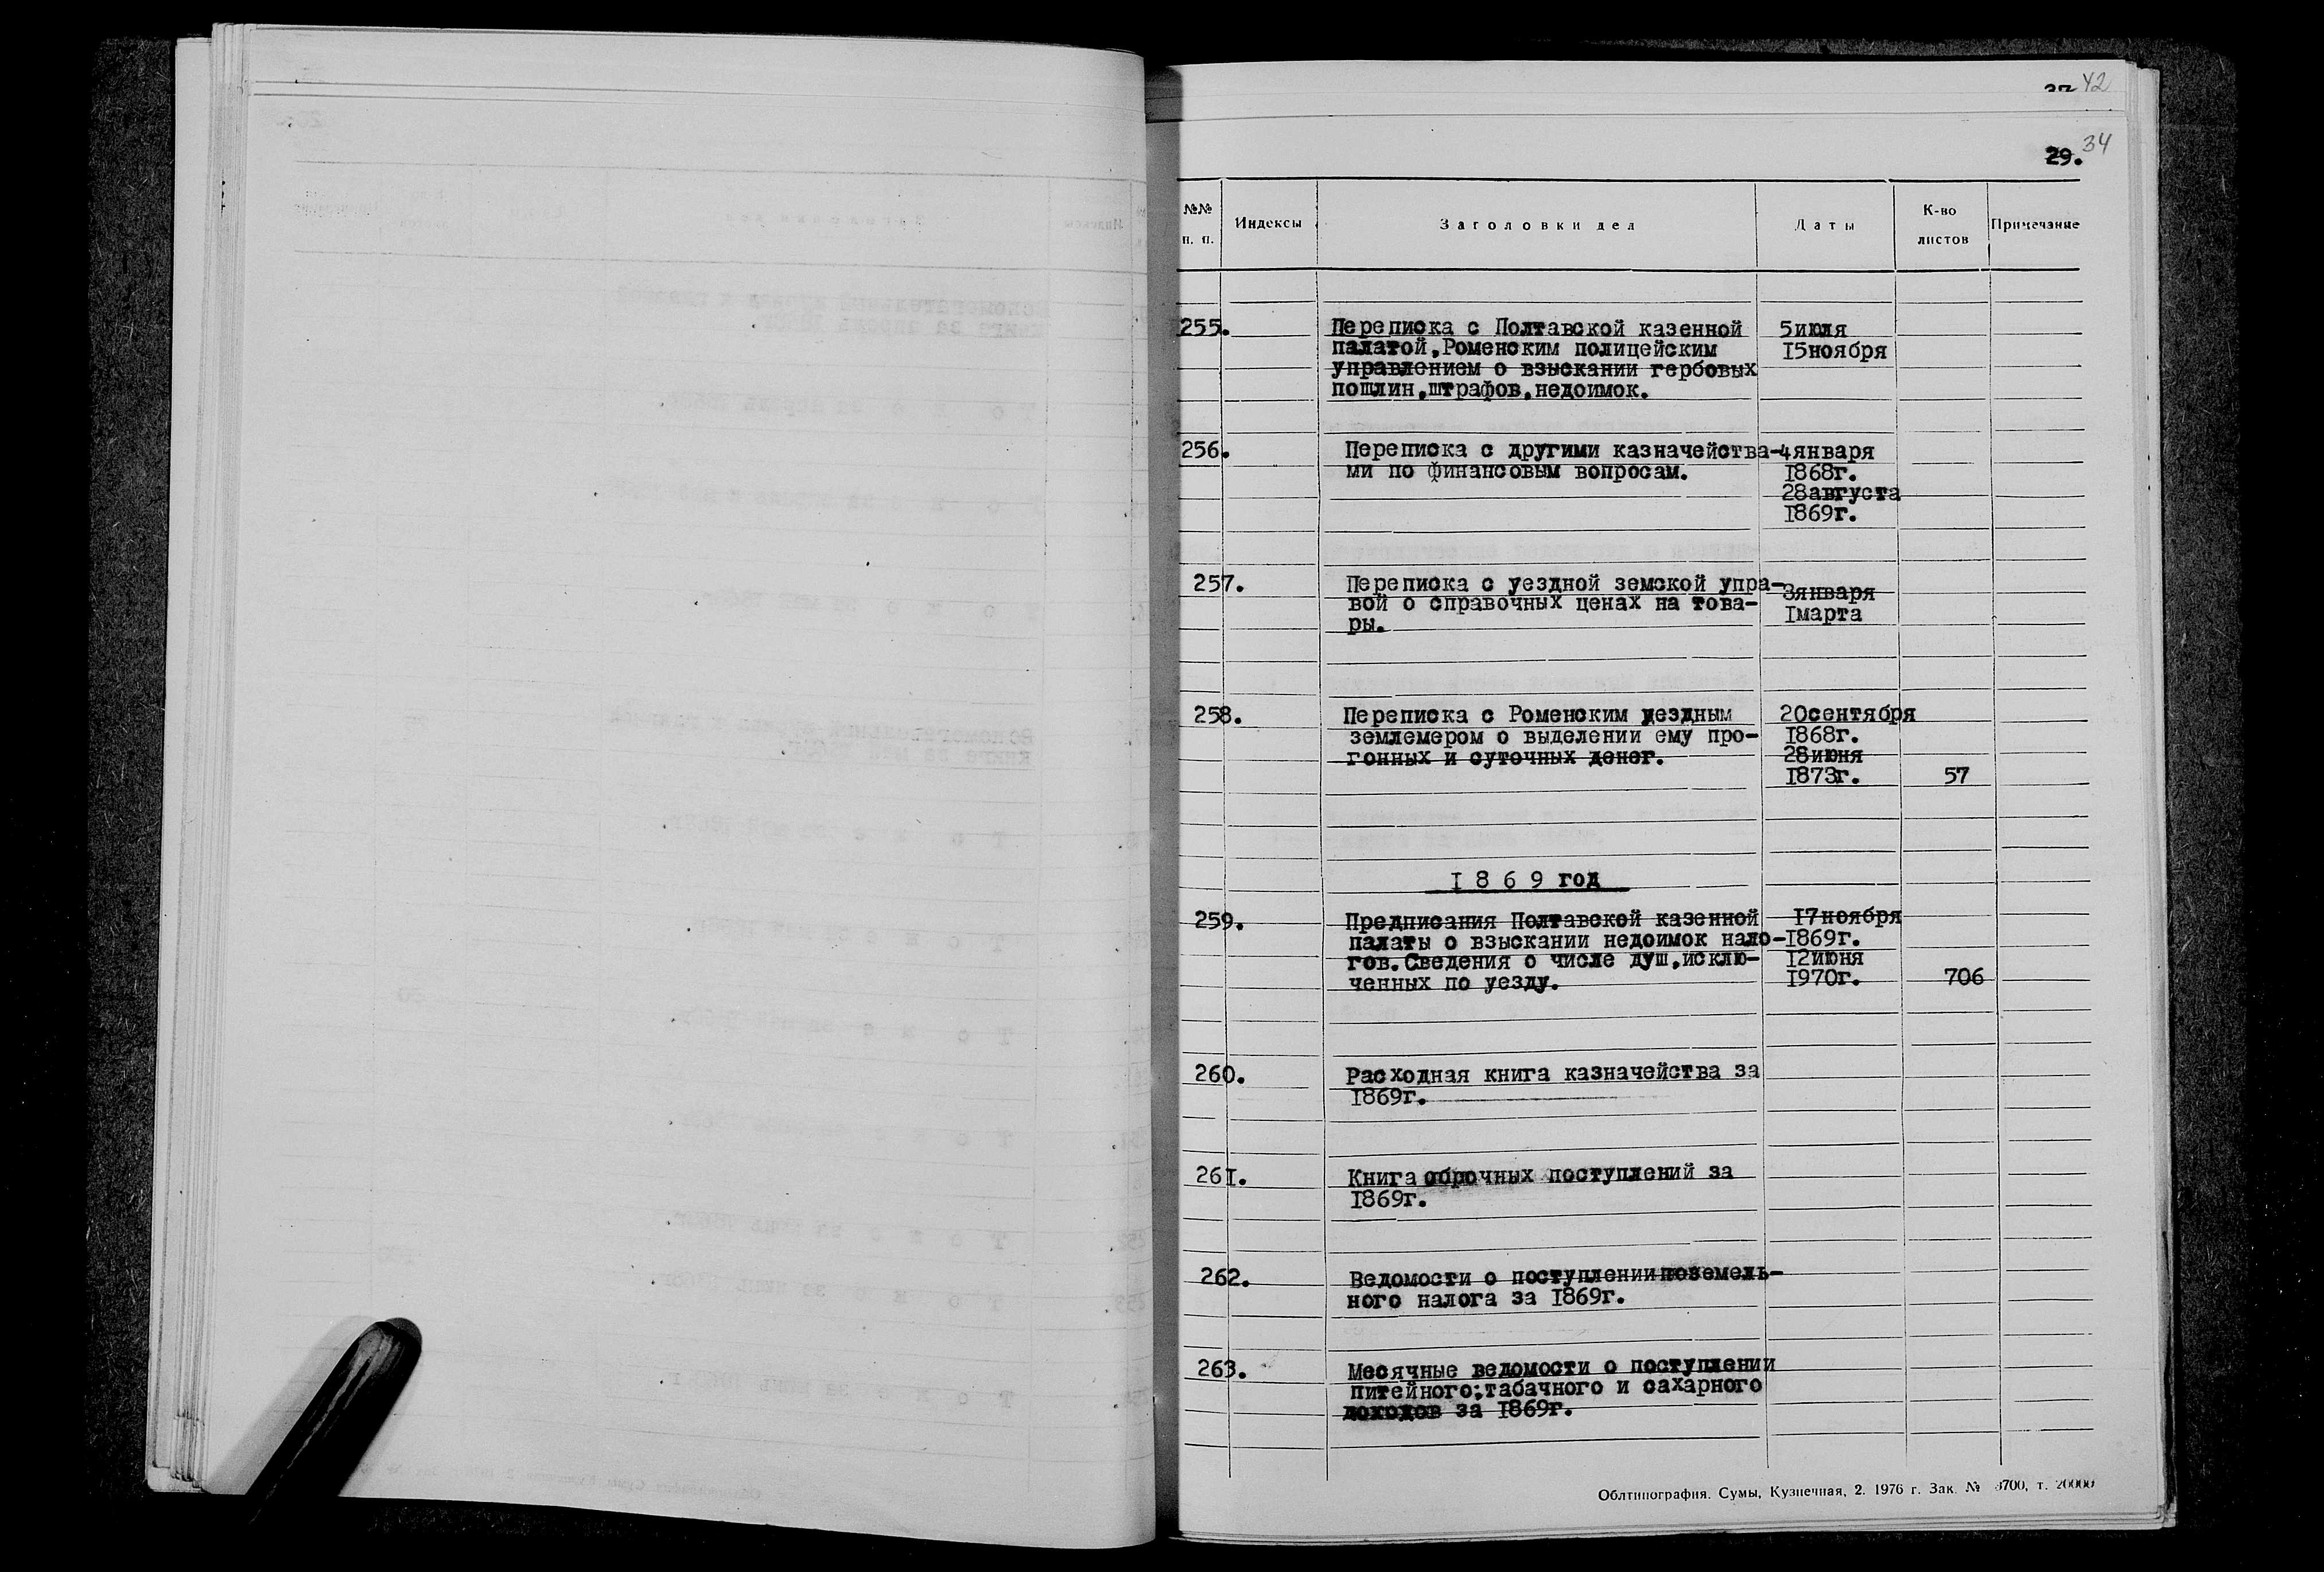 42
34
29.
№№ п. п.
Индексы
Заголовки дел
Даты
К-во листов
Примечание
255. Переписка с Полтавской казенной 5июля
палатой,Роменским полицейским 15ноября
управлением о взыскании гербовых
пошлин,штрафов,недоимок.
256. Переписка с другими казначейства- 4января
ми по финансовым вопросам. 1868г.
28августа
1869г.
257. Переписка с уездной земской упра- 3января
вой о справочных ценах на това- 1марта
ры.
258. Переписка с Роменским уездным 20сентября
землемером о выделении ему про- 1868г.
гонных и суточных денег. 28июня
1873г. 57
1869 год
259. Предписания Полтавской казенной 17ноября
палаты о взыскании недоимок нало- 1869г.
гов.Сведения о числе душ,исклю- 12июня
ченных по уезду. 1970г. 706
260. Расходная книга казначейства за
1869г.
261. Книга оброчных поступлений за
1869г.
262. Ведомости о поступлении поземель-
ного налога за 1869г.
263. Месячные ведомости о поступлении
питейного;табачного и сахарного
доходов за 1869г.
Облтипография. Сумы, Кузнечная, 2. 1976 г. Зак. № 3700, т. 20000